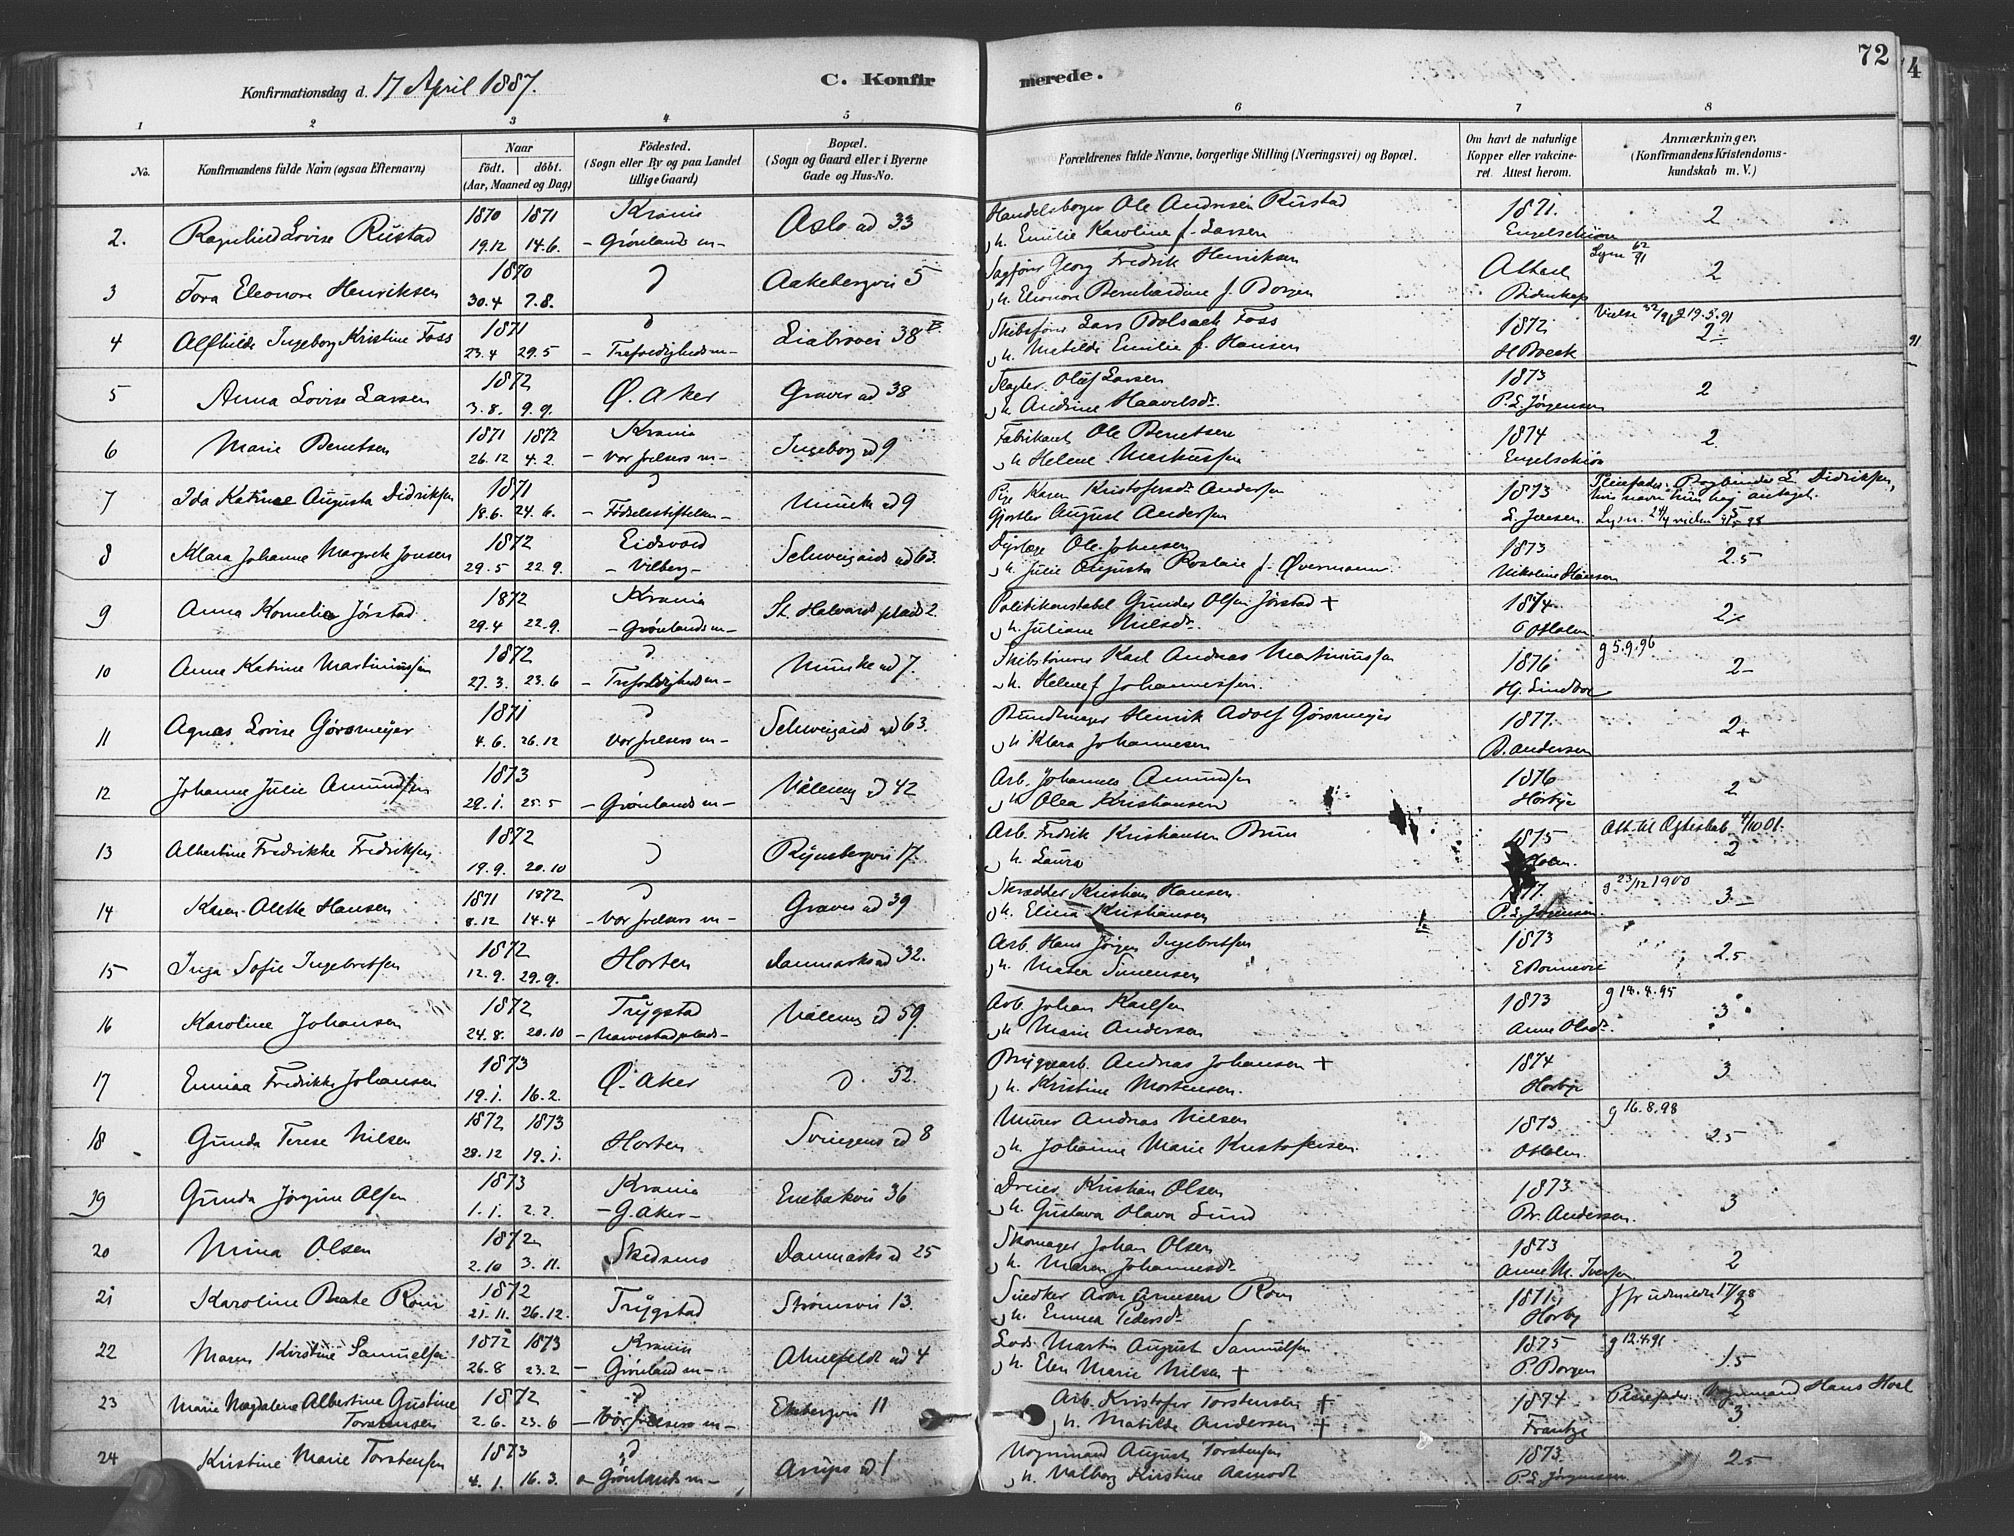 72
Konfirmationsdag d. 17 April 1887.
C. Konfirmerede.
1 2 3 4 5 6 7 8
No.
Konfirmandens fulde Navn (ogsaa Efternavn)
Naar
födt. döbt.
(Aar, Maaned og Dag)
Födested.
(Sogn eller By og paa Landet
tillige Gaard)
Bopæl.
(Sogn og Gaard eller i Byerne
Gade og Hus-No.
Forældrenes fulde Navne, borgerlige Stilling (Næringsvei) og Bopæl.
Om havt de naturlige
Kopper eller vakcine-
ret. Attest herom.
Anmærkninger.
(Konfirmandens Kristendoms-
kundskab m. V.)
2. Ragnhild Lovise Rustad 1870 19.12 1871 14.6. Krania - Grønlands m- Oslo ad 33 Handelsborger Ole Andresen Rustad
h. Emilie Karoline f. Larsen 1871. Engelschiøn 2
3 Tora Eleonore Henriksen 1870 30.4 7.8. Aakebergvei 5 Georg Fredrik Henriksen
h. Eleonore Bernhardine f. Borgen Attest 2
4 Alfhilde Ingeborg Kristine Foss 1871 23.4 29.5 - Trefoldigheds m- Liabrovei 38 Skibsfører Lars Foss
h. Matilde Emilie f. Hansen 1872 H Boeck 19.5.91 2-
5 Anna Lovise Larsen 1872 3.8. 9.9. Ø. Aker Graver ad 38 Slagter Oluf Larsen
h. Andrine Haavelsdr. 1873 P. L. Jørgensen 2
6 Marie Berntsen 1871 26.12 1872 4.2. Krania - Vor frelsers m- Ingeborg ad 9 Fabrikant Ole Berntsen
h Helene Markussen 1874 Engelschiøn 2
7 Ida Katrine Augusta Didriksen 1871 18.6. 24.6. - Fødselsstiftelsen - Munke ad 9 Pige Karen Kristofersdr Andersen
Gjørtler August Andersen 1873 L. Jensen Pleiefader: Bogbinder L. Didriksen,
hvis navn hun antaget.
8 Klara Johanne Margrete Jonsen 1872 29.5 22.9. Eidsvold - Vilberg - Schweigaards ad 63. Dyrlæge Ole Johnsen
h. Julie Augusta Rosalie f. Øvermann 1873 Nikoline Hansen 2.5
9 Anna Kornelia Jørstad 1872 29.4 22.9. Krania - Grønlands m- St. Halvards plads 2 Politikonstabel Gunder Olsen Jørstad +
h. Juliane Nilsdr. 1874 O Holm 2
10 Anna Katrine Martiniussen 1872 27.3. 23.6 - Trefoldigheds m- Munke ad 7. Karl Andreas Martiniussen
h. Helene f Johannessen. 1876 Hj. Lindboe g 5.9.96 2-
11 Agnes Lovise Gørsmeyer 1871 4.6. 26.12 Vor frelsers m- Schweigaards ad 63. Bundtmager Henrik Adolf Gørsmeyer
h Klara Johannesen 1877. B. Andersen 2+
12 Johanne Julie Amundsen 1873 29.1. 25.5 - Grønlands m- Vålereng ad 42 Arb. Johannes Amundsen
h Olea Kristiansen 1876 Horbye 2
13 Albertine Fredrikke Fredriksen 1872 19.9. 20.10 Ryensbergvei 17. Arb. Fredrik Kristiansen Brun
h. Laura 1875 Holm. Att. til Ægteskab 4/10 01. 2
14 Karen Alette Hansen 1871 8.12 1872 14.4 - Vor frelsers m- Graver ad 39 Skrædder Kristian Hansen.
h. Elina Kristiansen 1877. P. L. Jørgensen g 23/12 1900 3-
15 Inga Sofie Ingebretsen 1872 12.9. 29.9. Horten Danmarks ad 32. Arb. Hans Jørgen Ingebretsen
h. Matea Simensen 1873 E Bonnevie 2.5
16 Karoline Johansen 1872 24.8. 20.10 Trygstad Vålereng ad 59. Arb. Johan Karlsen
h Marie Andersen 1873 Anne Olsdr. g 18.8.95 3
17 Emma Fredrikke Johansen 1873 19.1. 16.2. Ø. Aker 52. Bryggearb. Andreas Johansen +
h. Kristine Mortensen. 1874 Horbye 3
18 Gunda Terese Nilsen 1872 28.12 1873 19.1. Horten Svingens ad 8 Murer Andreas Nilsen
h. Johanne Marie Kristofersen. 1873 O Holm. g 16.8.98 2.5
19 Gunda Jørgine Olsen 1873 1.1. 2.2. Krania - G. Aker - Enebakvei 36 Dreier Kristian Olsen
h. Gustava Olava Lund 1873 Br. Andersen. 3
20 Mina Olsen 1872 2.10 3.11. Skedsmo Danmarks ad 25 Skomager Johan Olsen
h. Maren Johannesdr. 1873 Anne M. Iversen 2
21 Karoline Beate Rom 1872 21.11. 26.12. Trygstad Strømsvei 13. Snedker Aron Arnesen Rom
h. Emma Pedersdr. 1871 Horby 17/98 2
22 Maren Kristine Samuelsen 1872 26.8 1873 23.2 Krania - Grønland m- Ahlefeldt ad 4 Lods Martin August Samuelsen
h. Elen Marie Nilsen + 1875 P. Borgen g 12.4.91 1.5
23 Marie Magdalene Albertine Gustine
Torstensen 1872 2.6. 23.6 - Vor frelsers m- Ekebergvei 11 Arb. Kristofer Torstensen +
h. Matilde Andersen + 1874 Frantze Pleiefader Vognmand Hans Hoel 3
24 Kristine Marie Torstensen 1873 4.1. 16.3. Grønlands m- Arups ad 1 Vognmand August Torstensen
h. Valborg Kristine Aamodt 1873. P. L. Jørgensen 2.5